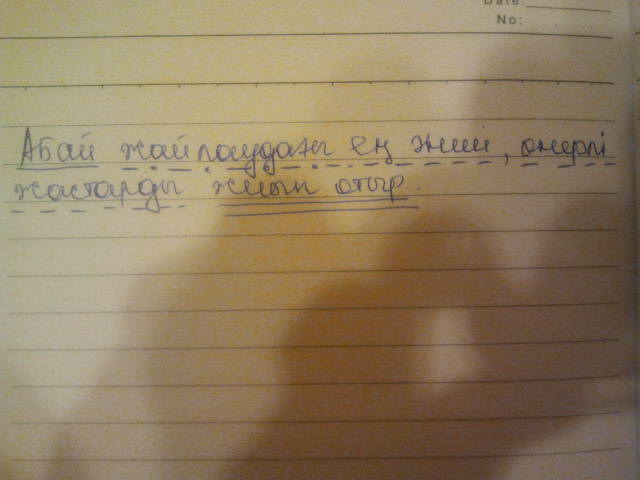 Date:
No:
Абай жайлаудағы ең жиі, өнерлі
жастарды жиып отыр.